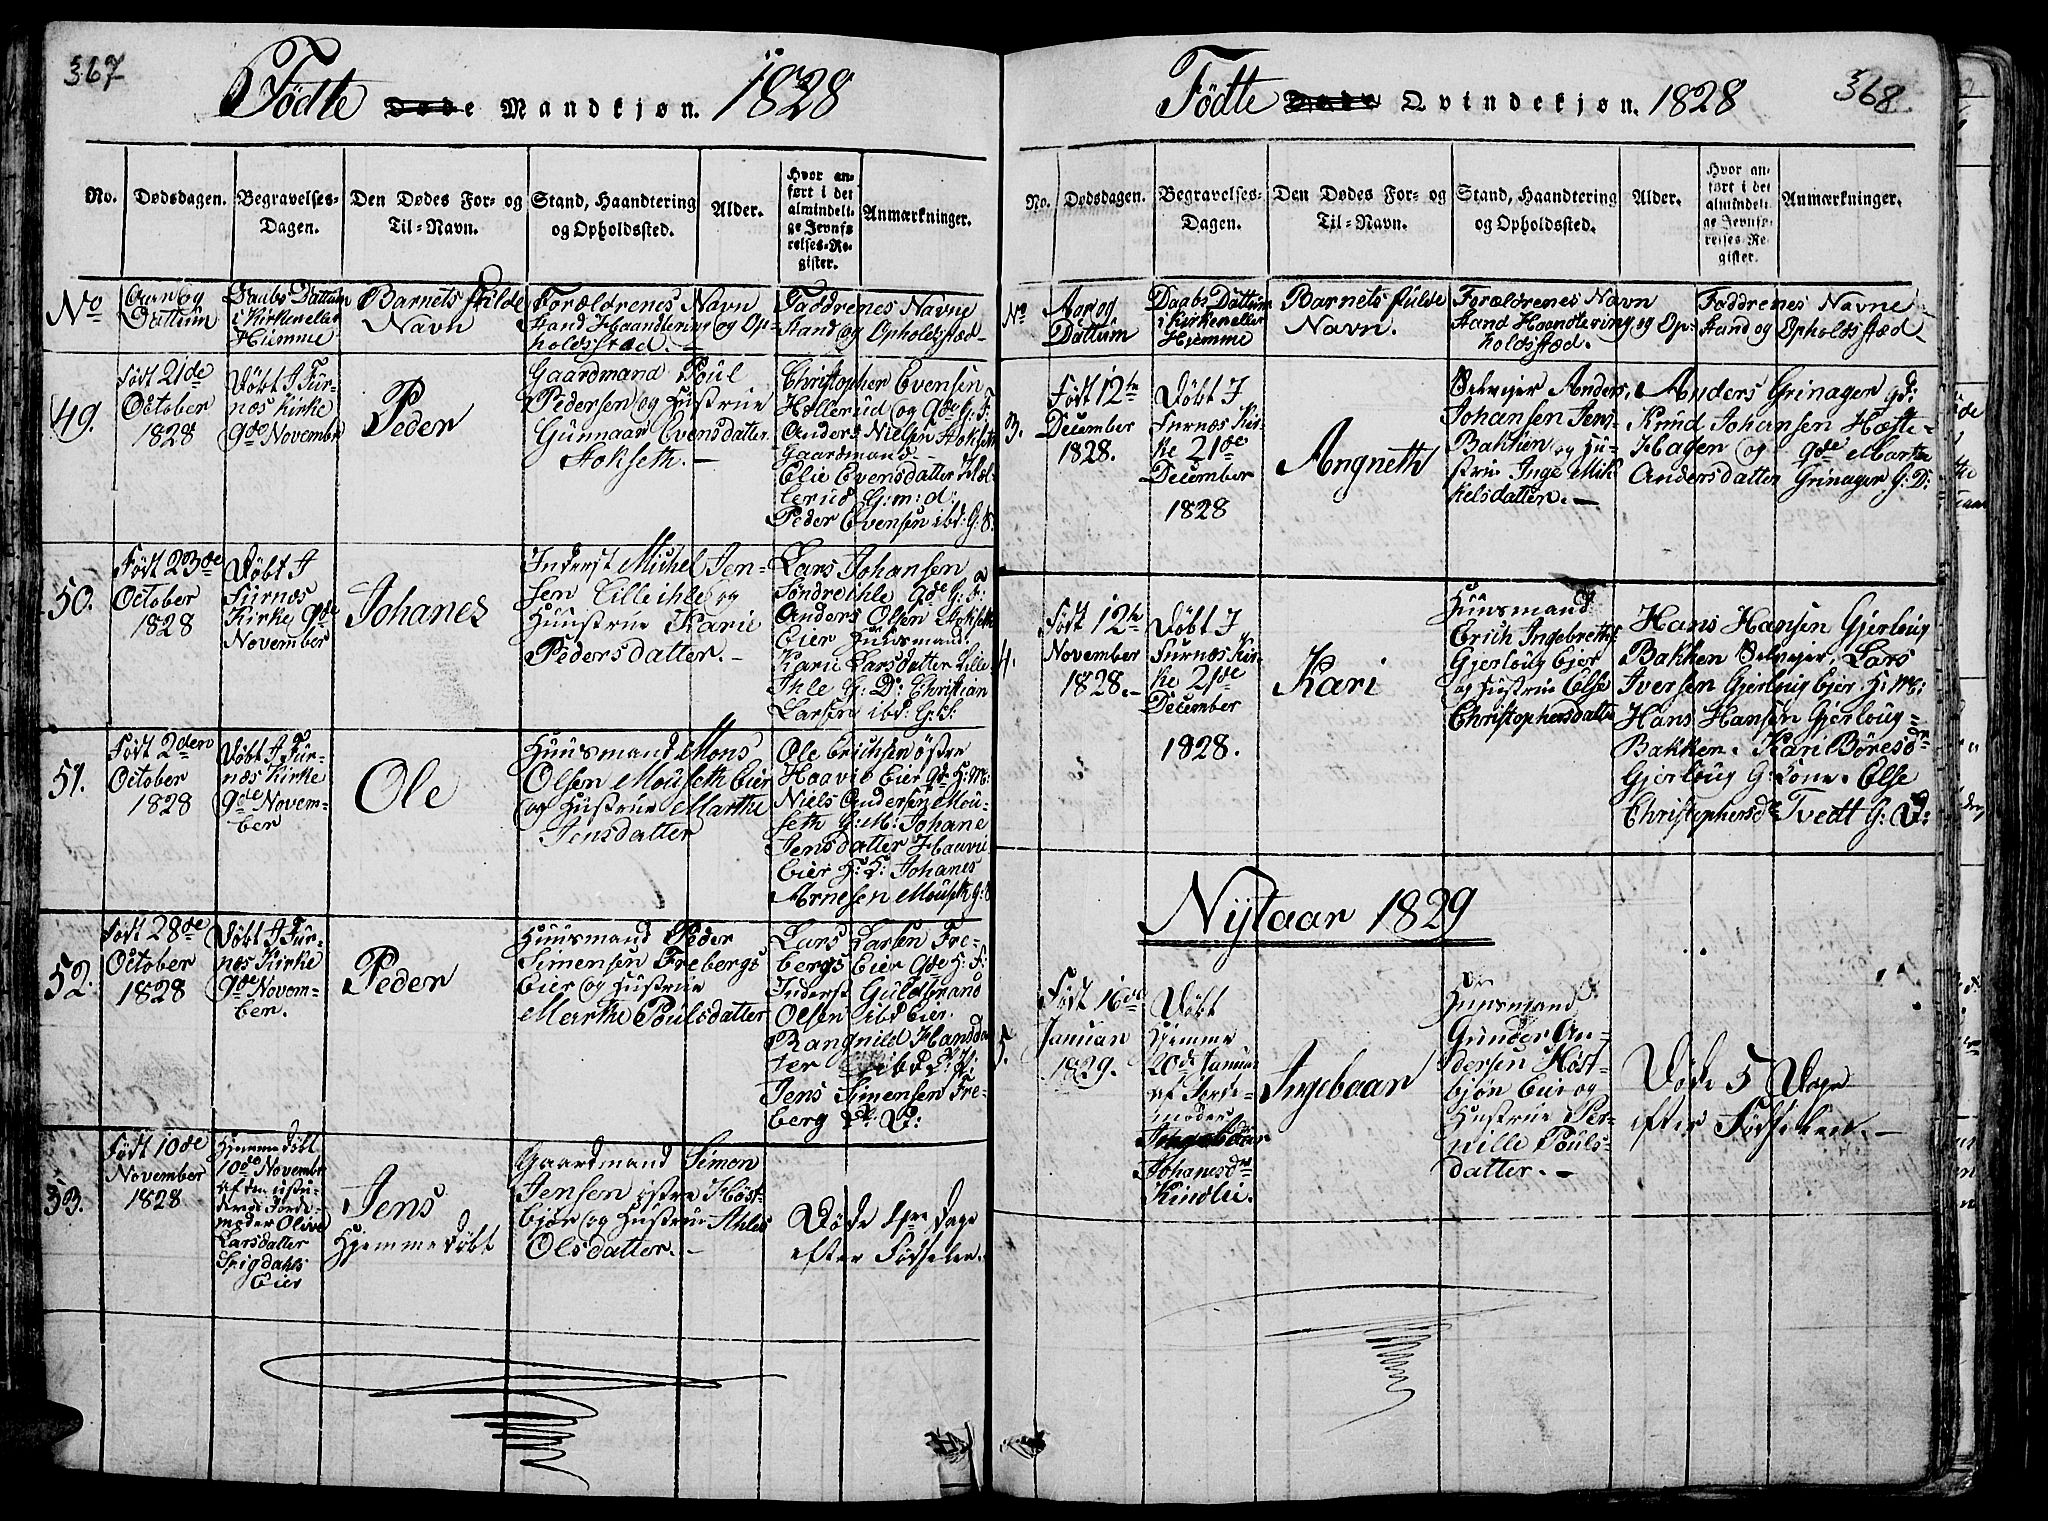 367
Fødte Døde Mandkjøn. 1828
No.
Dødsdagen.
Begravelses-
Dagen.
Den Dødes For- og
Til-Navn.
Stand, Haandtering
og Opholdssted.
Alder.
Hvor an-
ført i det
almindeli-
ge Jevnfø-
relses-Re-
gister.
Anmærkninger.
No
Aar og
Dattum
Daabs Dattum
i Kirken eller
Hiemme
Barnets fulde
Navn
Forældrenes Navn
Stand Haandtering og Op-
holdsstæd.
Faddrenes Navne
Stand og Opholdsstæd
49.
Født 21de
October
1828
Døbt I Fur-
næs Kirke
9de Novembr
Peder
Gaardmand Poul
Pedersen og Hustrue
Gunnaar Evensdatter
Stokseth. -
Christopher Evensen
Hollerud og 9de G: F:
Anders Nielsen Stokseth
Gaardmand -
Elie Evensdatter Hol-
lerud G: m: d:
Peder Evensen ibd: G: S:
50.
Født 23de
October
1828
Døbt I
Furnæs
Kirke 9de
November
Johanes
Inderst Michel Jen-
sen Lilleihle og
Huustrue Karie
Pedersdatter. -
Lars Johansen
Søndreihle 9de G: F:
Anders Olsen Stokseth
Eier Huusmand
Karie Larsdatter Lille
Ihle G: D: Christian
Larsen ibd: G: S:
51.
Født 2den
October
1828
Døbt I Fur-
næs Kirke
9de Novem-
ber
Ole
Huusmand Mons
Olsen Mouseth Eier
og Hustrue Marthe
Jensdatter
Ole Erichsen østre
Haavie Eier 9de H: M:
Niels Andersen Mou-
seth G: M: Johane
Jensdatter Haavie
Eier H: D: Johanes
Arnesen Mouseth G: S
52.
Født 28de
October
1828
Døbt I Fur-
næs Kirke
9de Novem-
ber.
Peder
Huusmand Peder
Simensen Frebergs
Eier og Hustrue
Marthe Poulsdatter
Lars Larsen Fre-
bergs Eier 9de H: F:
Inderst Guldbrand
Olsen ibd Eier.
Rangnild Hansdat
ter ibd
Jens Simensen Fre-
berg
53.
Født 10de
November
1828
Hjemmedøbt
10de Novembr
af den
Jorde-
moder Olive
Larsdatter
Sigdahls
Eier
Jens
Hjemmedøbt
Gaardmand Simon
Jensen østre Høst-
bjør og Hustrue Ahles
Olsdatter. -
Døde dage
efter Fødselen.
368
Fødte Døde Qvindekjøn. 1828
No.
Dødsdagen.
Begravelses-
Dagen.
Den Dødes For- og
Til-Navn.
Stand, Haandtering
og Opholdssted.
Alder.
Hvor an-
ført i det
almindeli-
ge Jevnfø-
relses-Re-
gister.
Anmærkninger.
No
Aar og
Dattum
Daabs Dattum
i Kirken eller
Hiemme
Barnets fulde
Navn.
Forældrenes Navn
Stand Haandtering og Op-
holdsstæd.
Faddrenes Navne
Stand og Opholdsstæd
3.
Født 12te
December
1828.
Døbt I
Furnæs Kir-
ke 21de
December
1828
Angneth
Selvejer Anders
Johansen Jens-
Bakken og Hu-
strue Inge Mik
kelsdatter. -
Anders Grinager gd:
Knud Johansen Hæste-
Hagen og 9de Marthe
Andersdatter Grinager G: D:
4.
Født 12te
November
1828. -
Døbt I
Furnæs Kir-
ke 21de
December
1828.
Kari
Huusmand
Erich Ingebreths
Gjerloug Ejer
og Hustrue Else
Christophersdatter
Hans Hansen Gjerloug
Bakken Selvejer, Lars
Iversen Gjerloug Ejer H: M:
Hans Hansen Gjerloug-
Bakken. Kari Børesdr
Gjerloug G: Kone. Else
Christophersdr Tvedt G: D:
Nytaar 1829
5.
Født 16de
Januari
1829.
Døbt
Hjemme
20de Januar
af Jorde-
moder
Ingebaar
Johanesdr
Kindlie.
Ingebaar
Huusmand
Gunder An-
dersen Høst-
bjør Eier og
Hustrue Per-
nille Pouls-
datter. -
Døde 5 Dage
efter Fødselen. -